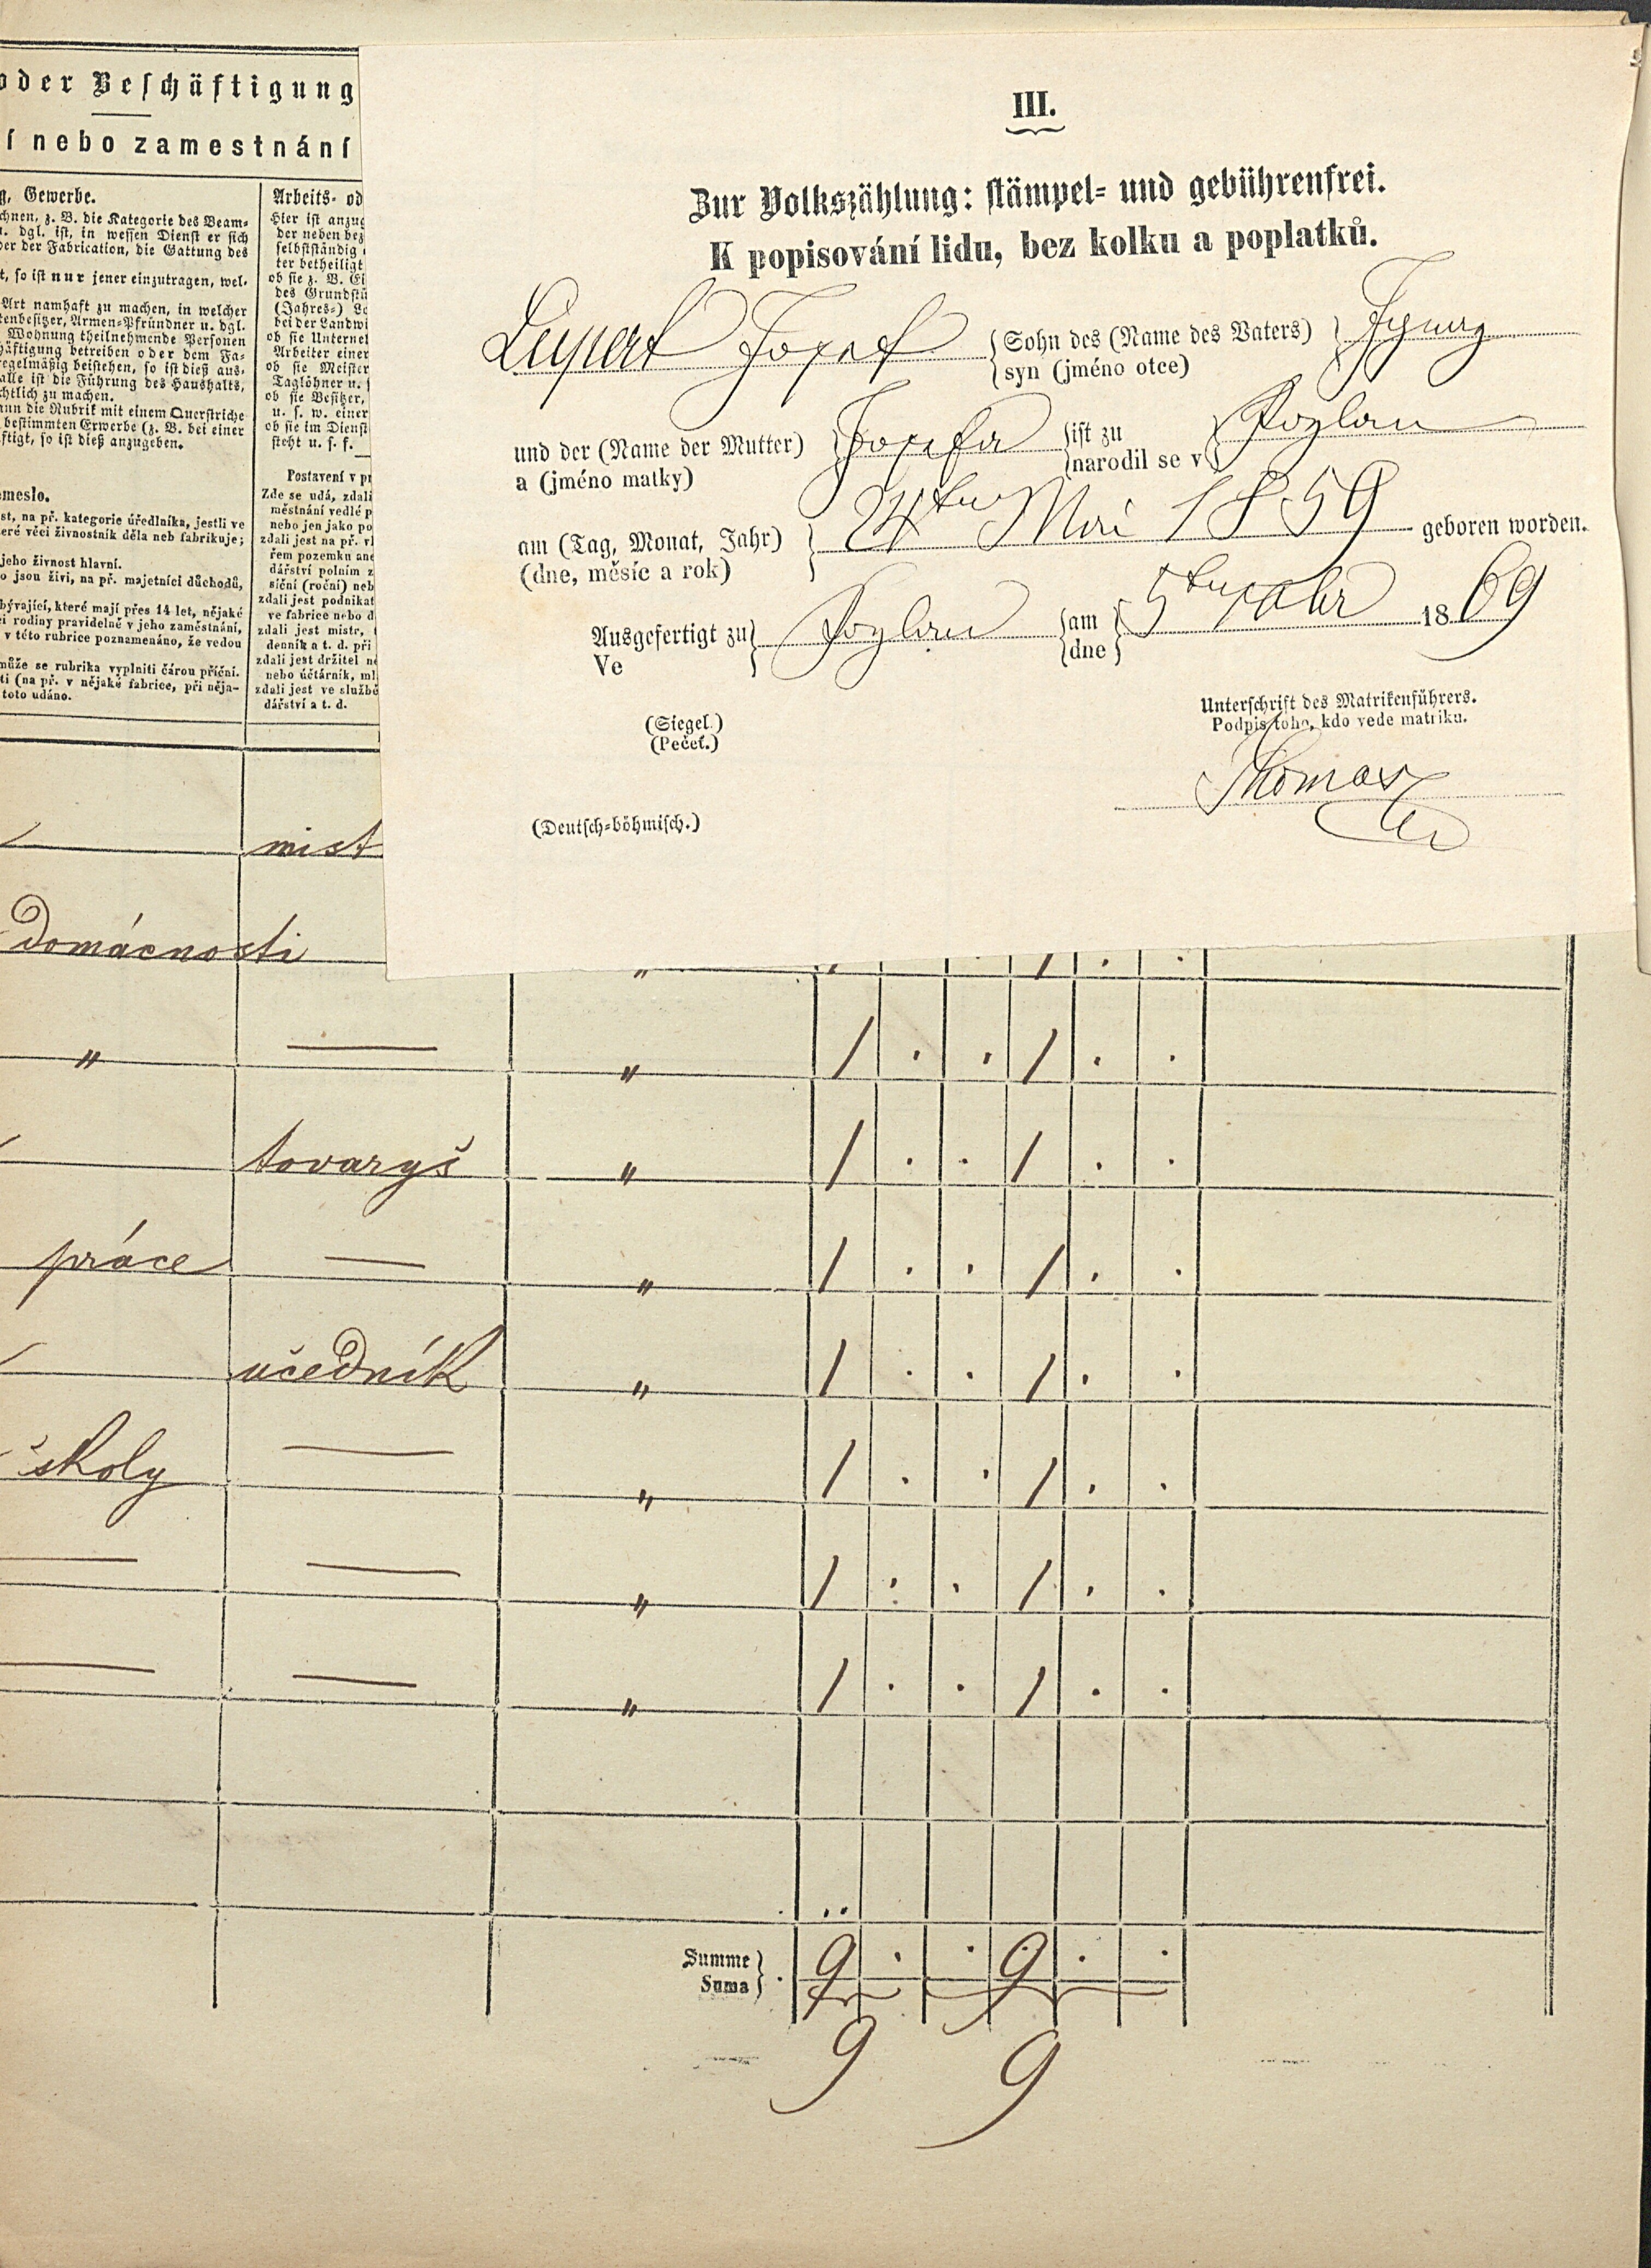 oder Beſchäftigung
í nebo zamestnání
g, Gewerbe.
chnen, z. B. die Kategorie des Beam-
u. dgl. iſt, in weſſen Dienſt er ſich
er der Fabrication, die Gattung des
t, ſo iſt nur jener einzutragen, wel-
Art namhaft zu machen, in welcher
tenbeſitzer, Armen-Pfründner u. dgl.
Wohnung theilnehmende Perſonen
häftigung betreiben oder dem Fa-
regelmäßig beiſtehen, ſo iſt dieß aus-
alle iſt die Führung des Haushalts,
chtlich zu machen.
ann die Rubrik mit einem Querſtriche
beſtimmten Erwerbe (z. B. bei einer
ftigt, ſo iſt dieß anzugeben.
emeslo.
st, na př. kategorie úředlníka, jestli ve
eré věci živnostník dělá neb fabrikuje;
jeho živnost hlavní.
o jsou živi, na př. majetníci důchodů,
bývající, které mají přes 14 let, nějaké
i rodiny pravidelně v jeho zaměstnání,
v této rubrice poznamenáno, že vedou
může se rubrika vyplniti čárou příční.
ti (na př. v nějaké fabrice, při něja-
toto udáno.
Arbeits- od
Hier iſt anzug
der neben bez
ſelbſtſtändig
ter betheiligt
ob ſie z. B. Ei
des Grundſtü
(Jahres-) Lo
bei der Landwi
ob ſie Unterneh
Arbeiter einer
ob ſie Meiſter
Taglöhner u.
ob ſie Beſitzer,
u. ſ. w. einer
ob ſie im Dienſt
ſteht u. ſ. f.
Postavení v pr
Zde se udá, zdali
městnání vedlé p
nebo jen jako po
zdali jest na př. vl
řem pozemku ane
dářství polním z
síční (roční) neb
zdali jest podnikat
ve fabrice nebo d
zdali jest mistr,
denník a t. d. při
zdali jest držitel ne
nebo účtárník, ml
zdali jest ve službě
dářství a t. d.
III.
Zur Volkszählung: ſtämpel- und gebührenfrei.
K popisování lidu, bez kolku a poplatků.
Josef Sohn des (Name des Vaters)
syn (jméno otce)
und der (Name der Mutter) Josefa iſt zu Iglau
a (jméno matky) narodil se v
am (Tag, Monat, Jahr) 24ten Mai 1859 geboren worden.
(dne, měsíc a rok)
Ausgefertigt zu Iglau am 5ten 1869
Ve dne
(Siegel.)
(Pečeť.)
Unterſchrift des Matrikenführers.
Podpis toho, kdo vede matriku.
Thomas
(Deutſch-böhmiſch.)
mist
domácnosti " / . . / . .
" — " / . . / . .
tovaryš " / . . / . .
práce — " / . . / . .
učedník " / . . / . .
školy — " / . . / . .
— — " / . . / . .
— — " / . . / . .
Summe 9 . . 9 . .
Suma
9 9